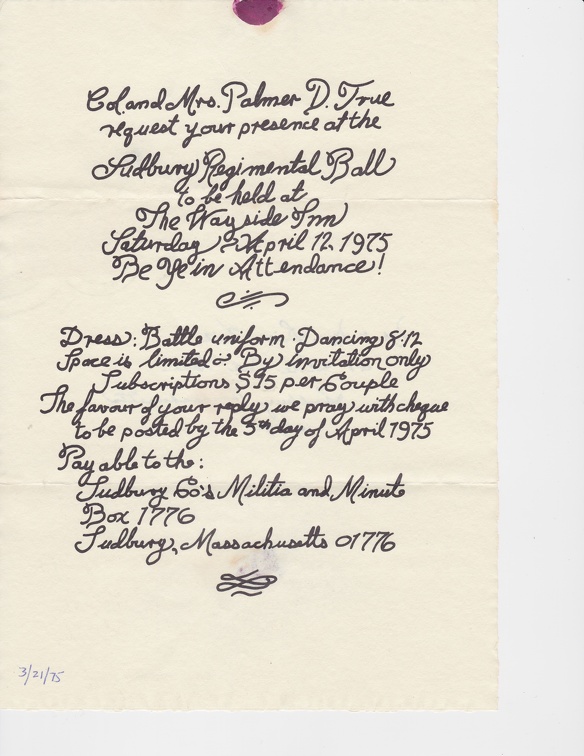 Col. and Mrs. Palmer D. True
request your presence at the
Sudbury Regimental Ball
to be held at
The Wayside Inn
Saturday April 12, 1975
Be Ye in Attendance!
Dress: Battle uniform · Dancing 8-12
Space is limited By invitation only
Subscriptions $15 per Couple
The favour of your reply we pray with cheque
to be posted by the 5th day of April 1975
Payable to the:
Sudbury Co's Militia and Minute
Box 1776
Sudbury, Massachusetts 01776
3/21/75